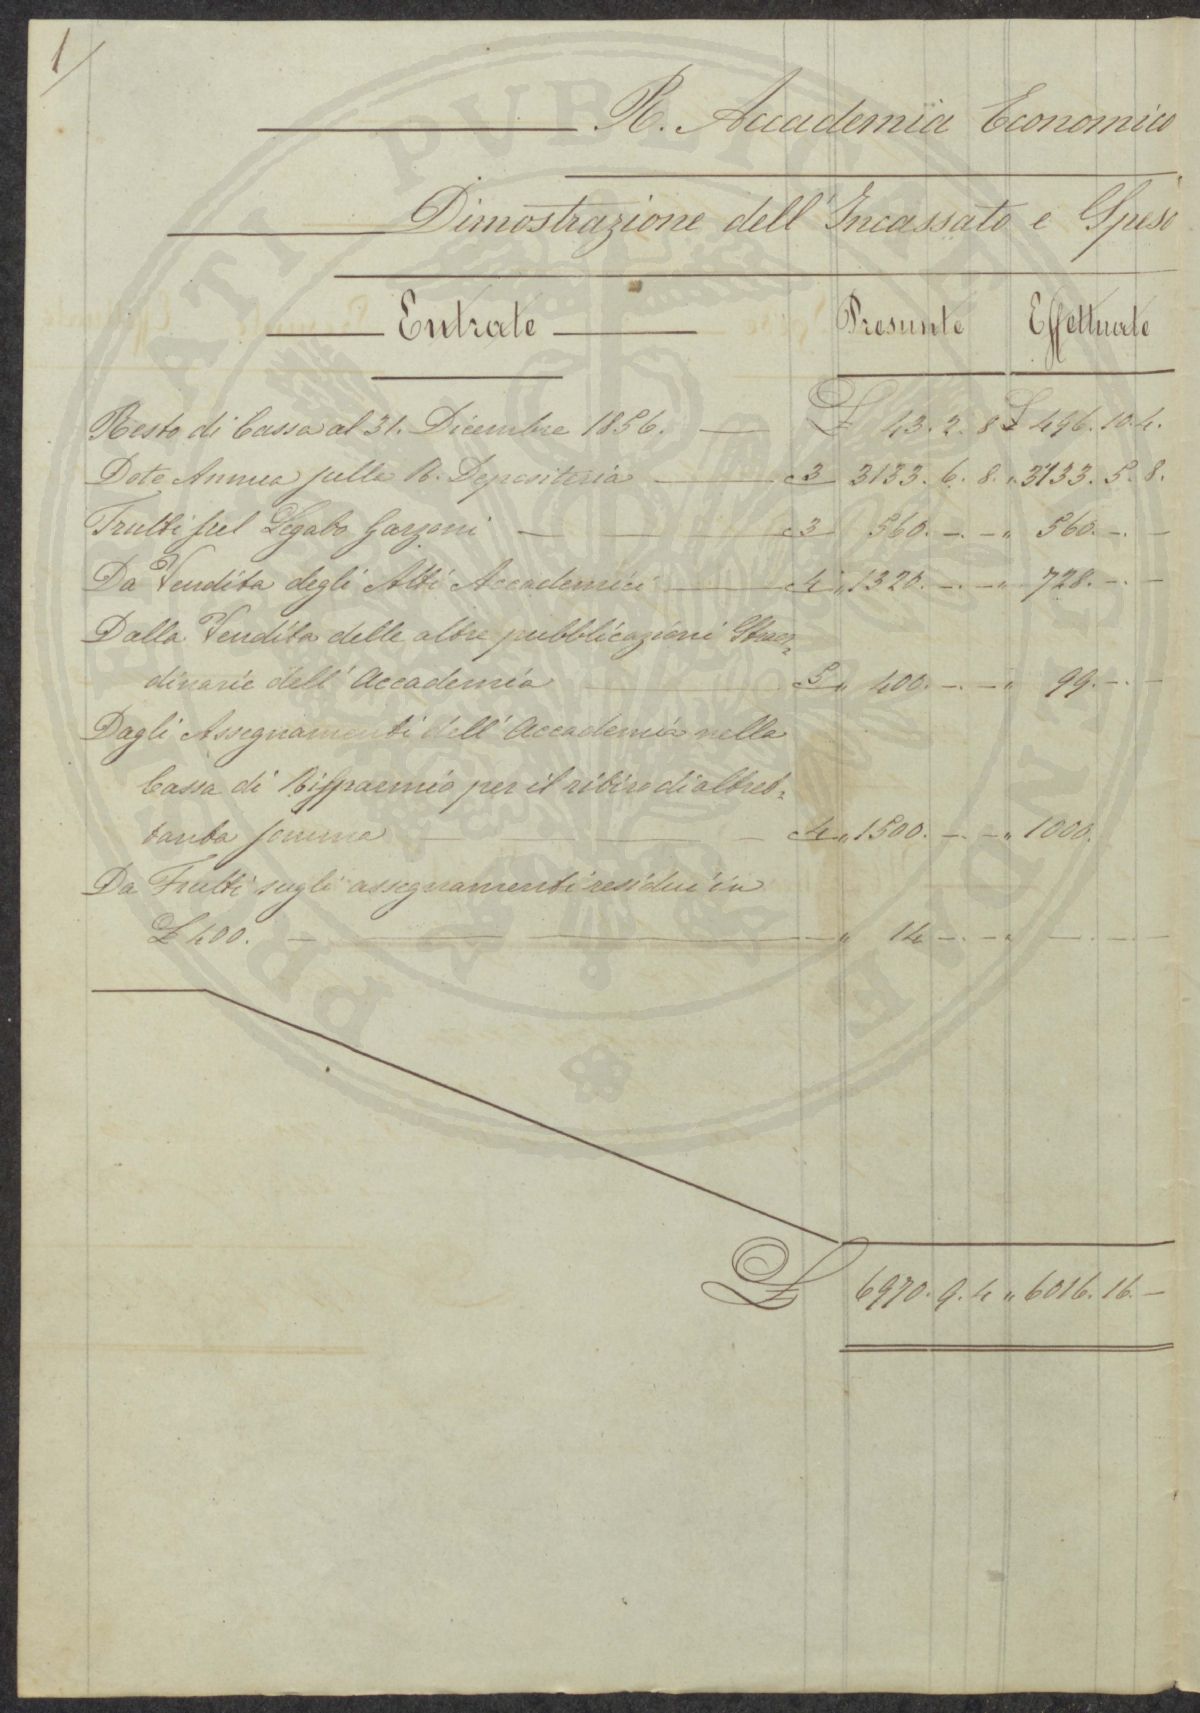 1
R. Accademia Economico
Dimostrazione dell' Incassato e Speso
Entrate Presunte Effettuate
Resto di Cassa al 31. Dicembre 1856. — £ 43. 2. 8 £ 496. 10. 4.
Dote Annua sulla R. Depositeria — 3 3133. 6. 8. " 3133. 5. 8.
Frutti sul Legato Garzoni — 3 560. —. — " 560. —. —
Da Vendita degli Atti Accademici — 4 " 1320. —. — " 728. —. —
Dalla Vendita delle altre pubblicazioni Straor=
dinarie dell' Accademia — 5 " 400. —. — " 99. —. —
Dagli Assegnamenti dell' Accademia nella
Cassa di Risparmio per il ritiro di altret=
tanta somma — 4 " 1500. —. — " 1000.
Da Frutti sugli assegnamenti residui in
£ 400. — " 14 —. — " —. —. —
£ 6970. 9. 4 " 6016. 16. —